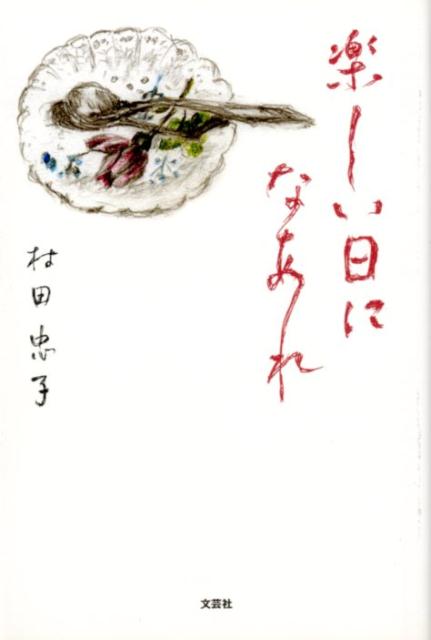 楽しい日に
なあれ
村田忠子
文芸社